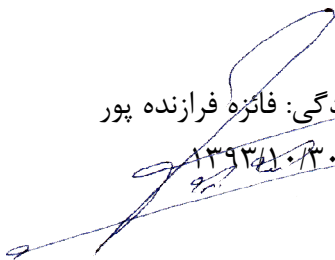 دگی: فائزه فرازنده پور
۱۳۹۳/۱۰/۳۰